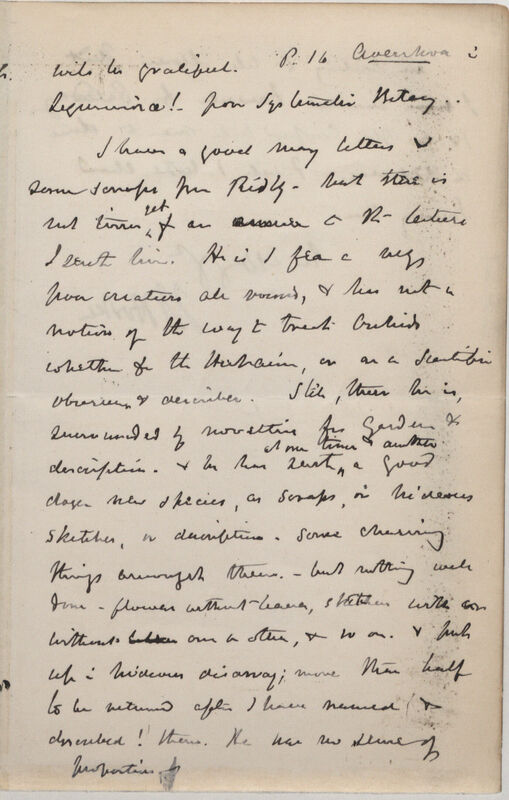 will be grateful. P. 16 Averrhoa i
Leguminosae! - from Systematic Botany.
I have a good many letters &
some scraps from Ridley - but there is
not time yet for an answer to the letters
I sent him. He is I fear a very
poor creature all round, & has not a
notion of the way to treat Orchids
whether for the Herbarium, or as a Scientific
observer & describer. Still, there he is,
surrounded by novelties for Garden &
description. & he has sent, at one time & another a good
dozen new species, as scraps, or hideous
sketches, or descriptions - some charming
things amongst them. - but nothing well
done - flowers without leaves, sketches with or
without one or other, & so on. & put
up in hideous disarray; more than half
to be returned after I have named &
described! them. He has no sense of
proportion